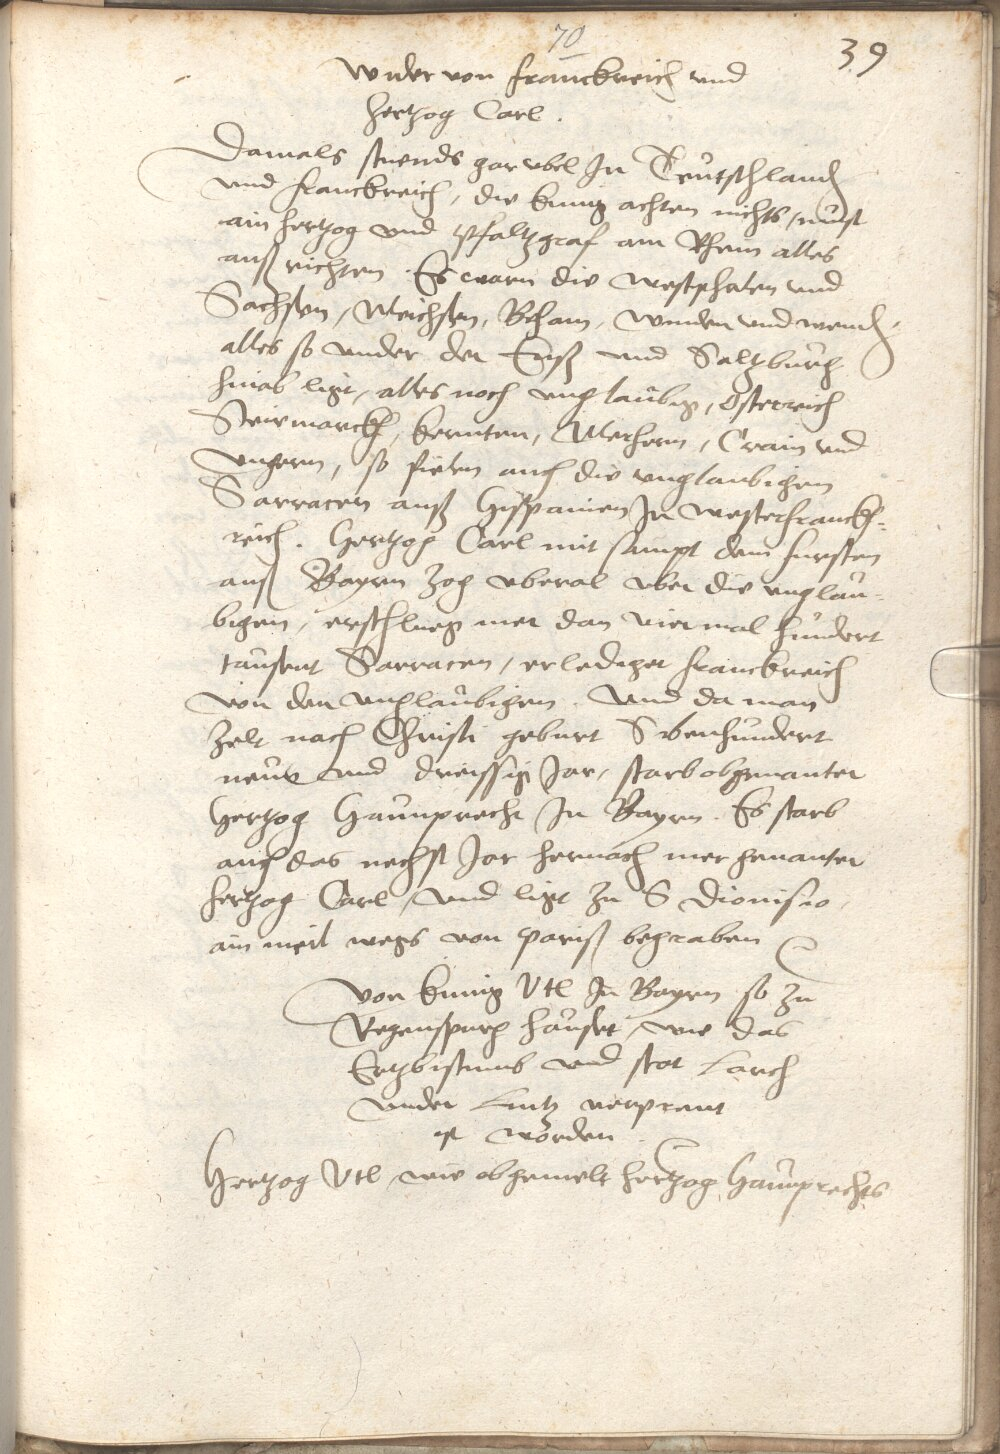 70
39
Wider von Franckreich und
Hertzog Carl.
Damals stuends gar vbel In Teutschland
vnd Franckreich, die kunig achten nichts, must
ain Hertzog vnd Pfaltzgraf am Rhein alles
außrichten. Es warn die Westphalen vnd
Sachsen, Meichsen, Beham, Winden vnd wend,
alles so vnder der Enß vnd Saltzburg
hinab ligt, alles noch vnglaubig, Osterreich
Steirmarckh, kernten, Merhern, Crain vnd
Vngern, so fielen auch die vnglaubigen
Sarracen auß Hispanien In Westerfranckh-
reich. Hertzog Carl mit sampt dem fursten
auß Bayrn zog vberal vber die vnglau-
bigen, erschlueg mer dan vier mal hundert
tausent Sarracen, erlediget Franckreich
von den vnglaubigen. Vnd da man
zelt nach Christi geburt Sibenhundert
neun vnd dreissig Jar, starb obgenanter
Hertzog Haunprecht In Bayrn. Es starb
auch das nechst Jar hernach mer genanter
Hertzog Carl, vnd ligt zu S Dionisio,
ain meil wegs von Pariß begraben
Von kunig Vtl In Bayrn so zu
Regenspurg hauset, wie das
Ertzbistumb vnd stat Larch
vnder Lintz verprent
ist worden
Hertzog Vtl, wie obgemelt Hertzog Haunprechts